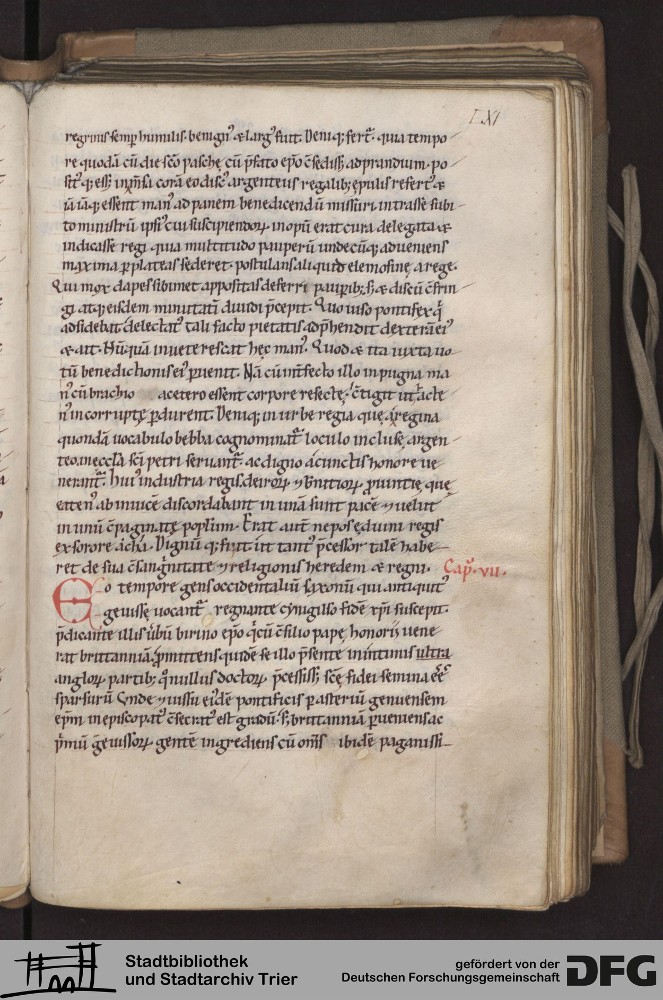 LXI
regrinis semp humilis. benign᷒ & larg᷒ fuit. Deniq; fert᷑. quia tempo
re quodā cū die scō paschę cū p̄fato ep̄o c̄sediss& ad prandium. po
sit᷒ q; ess& in mensa corā eo disc᷒ argenteus regalib; epulis refert᷒ &
iā iāq; essent man᷒ ad panem benedicendū missuri. intrasse subi
to ministrū ipsi᷒ cui suscipiendoꝝ inopū erat cura delegata &
indicasse regi quia multitudo pauperū undecūq; adueniens
maxima ꝑ plateas seder&. postulans aliquid elemosinę a rege.
Qui mox dapes sibimet appositas deferri paupib; s; & discū c̄frin
gi atq; eisdem minutatī diuidi p̄cepit. Quo uiso pontifex q̇
adsidebat delectat᷒ tali facto pietatis adp̄hendit dexterā ei᷒
& ait. Nūquā inueterescat hęc man᷒. Quod & ita iuxta uo
tū benedictionis ei᷒ ꝓuenit. Nā cū int̄fecto illo in pugna ma
n᷒ cū brachio a cetero essent corpore resectę. c̄tigit ut acte
n᷒ incorruptę ꝑdurent. Deniq; in urbe regia que a regina
quondā uocabulo bebba cognominat᷑ loculo inclusę argen
teo in eccl̄a sc̄i petri seruant᷑. ac digno a cunctis honore ue
nerant᷑. Hui᷒ industria regis deiroꝝ ⁊ b̄nicioꝝ ꝓuintię. quę
eaten᷒ ab inuicē discordabant in unā sunt pacē ⁊ uelut
in unū c̄paginatę poplūm. Erat autē nepos ęduini regis
ex sorore acha. Dignū q; fuit ut tant᷒ p̄cessor talē habe
ret de sua c̄sang̍nitate ⁊ religionis heredem & regni.
Cap̄. vii.
Eo tempore gens occidentaliū saxonū qui antiquit᷒
geuissę uocant᷑ regnante cynigilso fidē xp̄i suscepit.
p̄dicante illis ùbū birino ep̄o q̇ cū c̄silio papę honorij uene
rat brittanniā. ꝓmittens quidē se illo p̄sente in intimis ultra
angloꝝ partib; q̊ nullus doctoꝝ p̄cessiss& scę̄ fidei semina eē
sparsurū. Unde ⁊ iussu ei᷒dē pontificis ꝑ asteriū genuensem
ep̄m in episcopat᷒ c̄secrat᷒ est gradū. S; brittanniā ꝑueniens ac
p̄mū geuissoꝝ gentē ingrediens cū om̄s ibidē paganissi
Stadtbibliothek
und Stadtarchiv Trier
gefördert von der
Deutschen Forschungsgemeinschaft
DFG